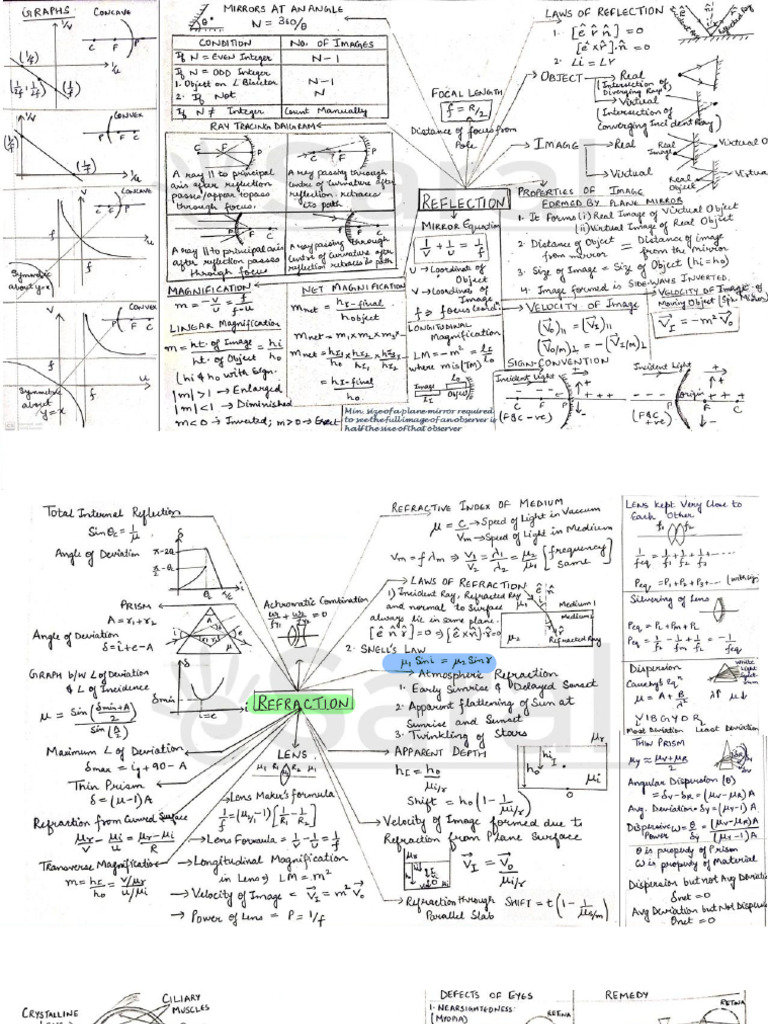 GRAPHS
CONCAVE
CONVEX
CONCAVE
Symmetric about y=x
CONVEX
Symmetric about y=x
MIRRORS AT AN ANGLE
N = 360/θ
CONDITION
NO. OF IMAGES
If N = EVEN Integer
N-1
If N = ODD Integer
1. Object on ∠ Bisector
N-1
2. If Not
N
If N ≠ Integer
Count Manually
RAY TRACING DIAGRAM
A ray || to principal axis after reflection passes/appear to pass through focus.
A ray passing through Centre of Curvature after reflection retraces its path
A ray || to principal axis after reflection passes through focus
A ray passing through Centre of Curvature after reflection retraces its path
MAGNIFICATION
m = -v/u = f/(f-u)
LINEAR Magnification
m = ht. of Image / ht. of Object = hi/ho
(hi & ho with sign)
|m| > 1 → Enlarged
|m| < 1 → Diminished
m<0 → Inverted; m>0 → Erect
NET MAGNIFICATION
mnet = hI-final / hobject
= hI-final / ho
FOCAL LENGTH
f = R/2
Distance of focus from Pole
REFLECTION
MIRROR Equation
1/v + 1/u = 1/f
U → Coordinate of Object
V → Coordinate of Image
LONGITUDINAL Magnification
Min. size of a plane mirror required
to see the full image of an observer is
half the size of that observer
LAWS OF REFLECTION
2. ∠i = ∠r
OBJECT
Real
(Intersection of Diverging Rays)
Virtual
(Intersection of Converging Incident Ray)
IMAGE
Real
Virtual
Real Image
Real Object
PROPERTIES OF IMAGE FORMED BY PLANE MIRROR
1. It Forms (i) Real Image of Virtual Object
(ii) Virtual Image of Real Object
2. Distance of Object from mirror = Distance of image from the mirror
3. Size of Image = Size of Object (hi=ho)
4. Image formed is SIDEWAYS INVERTED.
VELOCITY OF IMAGE
SIGN-CONVENTION
Incident Light
(F&C -ve)
Incident Light
origin
(F&C +ve)
Total Internal Reflection
Sin θc = 1/μ
Angle of Deviation
PRISM
A = r1+r2
Angle of Deviation
δ = i+e-A
GRAPH b/w ∠ of Deviation & ∠ of Incidence
μ = Sin((δmin+A)/2) / Sin(A/2)
Maximum ∠ of Deviation
Thin Prism
δ = (μ-1)A
Refraction from Curved Surface
μr/V - μi/u = (μr-μi)/R
Transverse Magnification
m = hI/ho = (V/μr)/(u/μi)
Achromatic Combination
REFRACTION
LENS
Lens Maker's formula
Lens Formula = 1/v - 1/u = 1/f
Longitudinal Magnification in Lens; LM = m²
Velocity of Image = V⃗I = m² V⃗o
Power of Lens = P = 1/f
REFRACTIVE INDEX OF MEDIUM
μ = C/Vm → Speed of Light in Vaccum
→ Speed of Light in Medium
Vm = fλm ⇒ V1/V2 = λ1/λ2 = μ2/μ1 [frequency same]
LAWS OF REFRACTION
1) Incident Ray, Refracted Ray and normal to surface always lie in same plane.
Medium 1
Medium 2
Refracted Ray
2. SNELL'S LAW
μ1 Sin i = μ2 Sin r
Atmospheric Refraction
1. Early Sunrise & Delayed Sunset
2. Apparent flattening of Sun at Sunrise and Sunset
3. Twinkling of Stars
APPARENT DEPTH
hI = ho/μi/r
Shift = ho(1 - 1/μi/r)
Velocity of Image formed due to Refraction from Plane Surface
V⃗I = V⃗o/μi/r
Refraction through Parallel Slab
SHIFT = t(1 - 1/μs/m)
LENS Kept Very Close to Each Other
1/feq = 1/f1 + 1/f2 + 1/f3 + ....
Peq = P1+P2+P3+...
Silvering of Lens
Dispersion
Cauchy's Eqn
VIBGYOR
Most Deviation
Least Deviation
THIN PRISM
Angular Dispersion (θ)
= δv-δR = (μv-μR)A
Avg. Deviation = δy = (μy-1)A
Dispersive Power ω = θ/δy = (μv-μR)A / (μy-1)A
θ is property of Prism
ω is property of Material
Dispersion but not Avg Deviation
δnet = 0
Avg Deviation but Not Dispersion
θnet = 0
CRYSTALLINE
CILIARY MUSCLES
DEFECTS OF EYES
REMEDY
1. NEARSIGHTEDNESS: (MYOPIA)
RETINA
RETINA